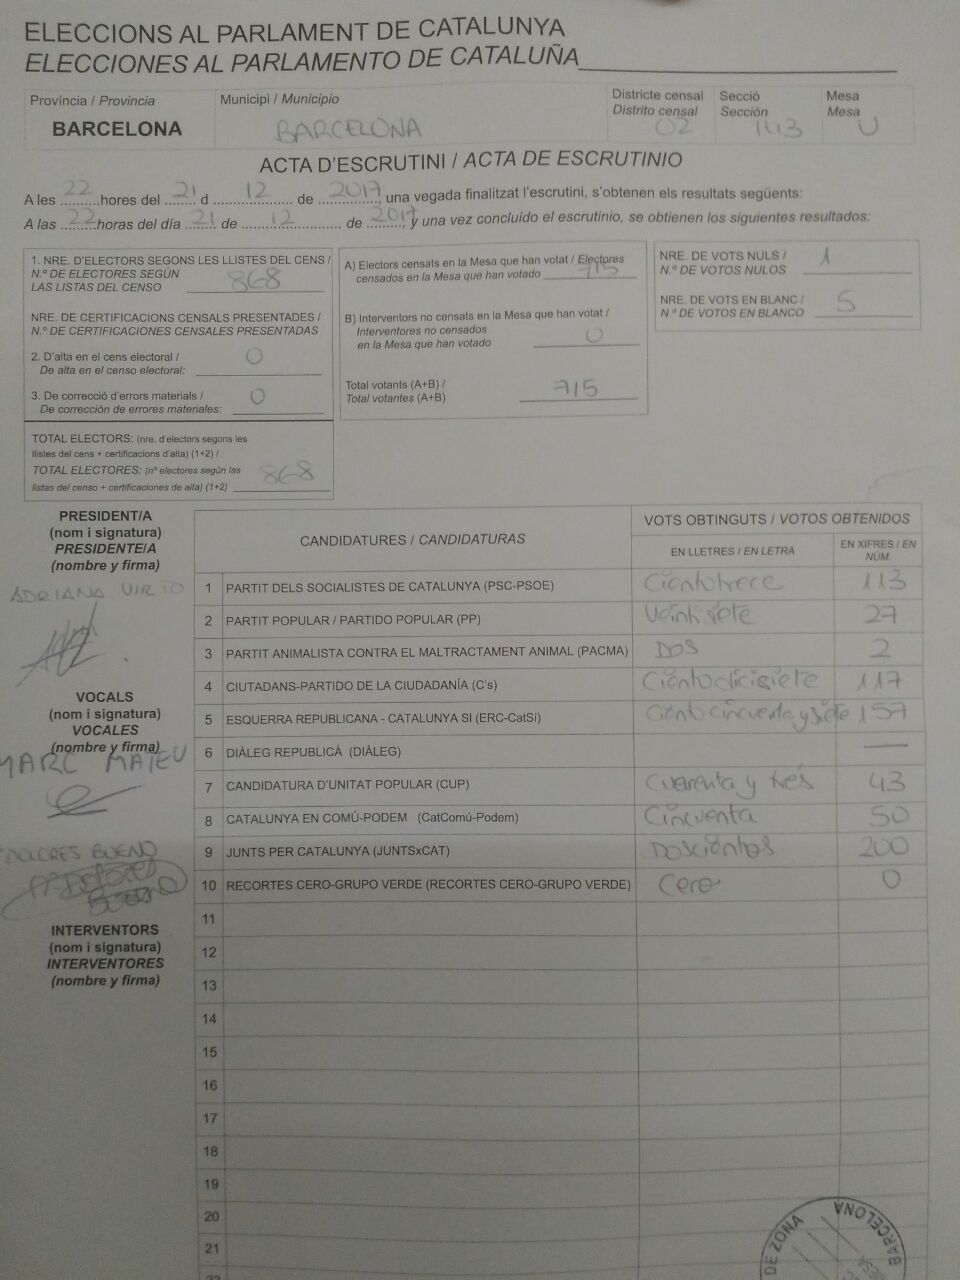 ELECCIONS AL PARLAMENT DE CATALUNYA
ELECCIONES AL PARLAMENTO DE CATALUÑA
Província / Provincia
BARCELONA
Municipi / Municipio
BARCELONA
Districte censal
Distrito censal
02
Secció
Sección
143
Mesa
Mesa
U
ACTA D'ESCRUTINI / ACTA DE ESCRUTINIO
A les 22 hores del 21 d 12 de 2017, una vegada finalitzat l'escrutini, s'obtenen els resultats següents:
A las 22 horas del día 21 de 12 de 2017, y una vez concluido el escrutinio, se obtienen los siguientes resultados:
1. NRE. D'ELECTORS SEGONS LES LLISTES DEL CENS /
N.º DE ELECTORES SEGÚN
LAS LISTAS DEL CENSO 868
NRE. DE CERTIFICACIONS CENSALS PRESENTADES /
N.º DE CERTIFICACIONES CENSALES PRESENTADAS
2. D'alta en el cens electoral /
De alta en el censo electoral: 0
3. De correcció d'errors materials /
De corrección de errores materiales: 0
TOTAL ELECTORS: (nre. d'electors segons les
llistes del cens + certificacions d'alta) (1+2) /
TOTAL ELECTORES: (nº electores según las
listas del censo + certificaciones de alta) (1+2) 868
A) Electors censats en la Mesa que han votat / Electores
censados en la Mesa que han votado 715
B) Interventors no censats en la Mesa que han votat /
Interventores no censados
en la Mesa que han votado 0
Total votants (A+B) /
Total votantes (A+B) 715
NRE. DE VOTS NULS /
N.º DE VOTOS NULOS 1
NRE. DE VOTS EN BLANC /
N.º DE VOTOS EN BLANCO 5
PRESIDENT/A
(nom i signatura)
PRESIDENTE/A
(nombre y firma)
ADRIANA VIRTO
VOCALS
(nom i signatura)
VOCALES
(nombre y firma)
MARC MATEU
DOLORES BUENO
INTERVENTORS
(nom i signatura)
INTERVENTORES
(nombre y firma)
CANDIDATURES / CANDIDATURAS
VOTS OBTINGUTS / VOTOS OBTENIDOS
EN LLETRES / EN LETRA
EN XIFRES / EN
NÚM.
1 PARTIT DELS SOCIALISTES DE CATALUNYA (PSC-PSOE) Ciento trece 113
2 PARTIT POPULAR / PARTIDO POPULAR (PP) Veintisiete 27
3 PARTIT ANIMALISTA CONTRA EL MALTRACTAMENT ANIMAL (PACMA) DOS 2
4 CIUTADANS-PARTIDO DE LA CIUDADANÍA (C's) Ciento dicisiete 117
5 ESQUERRA REPUBLICANA - CATALUNYA SI (ERC-CatSí) Ciento cincuenta y siete 157
6 DIÀLEG REPUBLICÀ (DIÀLEG) —
7 CANDIDATURA D'UNITAT POPULAR (CUP) Cuarenta y tres 43
8 CATALUNYA EN COMÚ-PODEM (CatComú-Podem) Cincuenta 50
9 JUNTS PER CATALUNYA (JUNTSxCAT) Doscientos 200
10 RECORTES CERO-GRUPO VERDE (RECORTES CERO-GRUPO VERDE) Cero 0
11
12
13
14
15
16
17
18
19
20
21
DE ZONA
BARCELONA